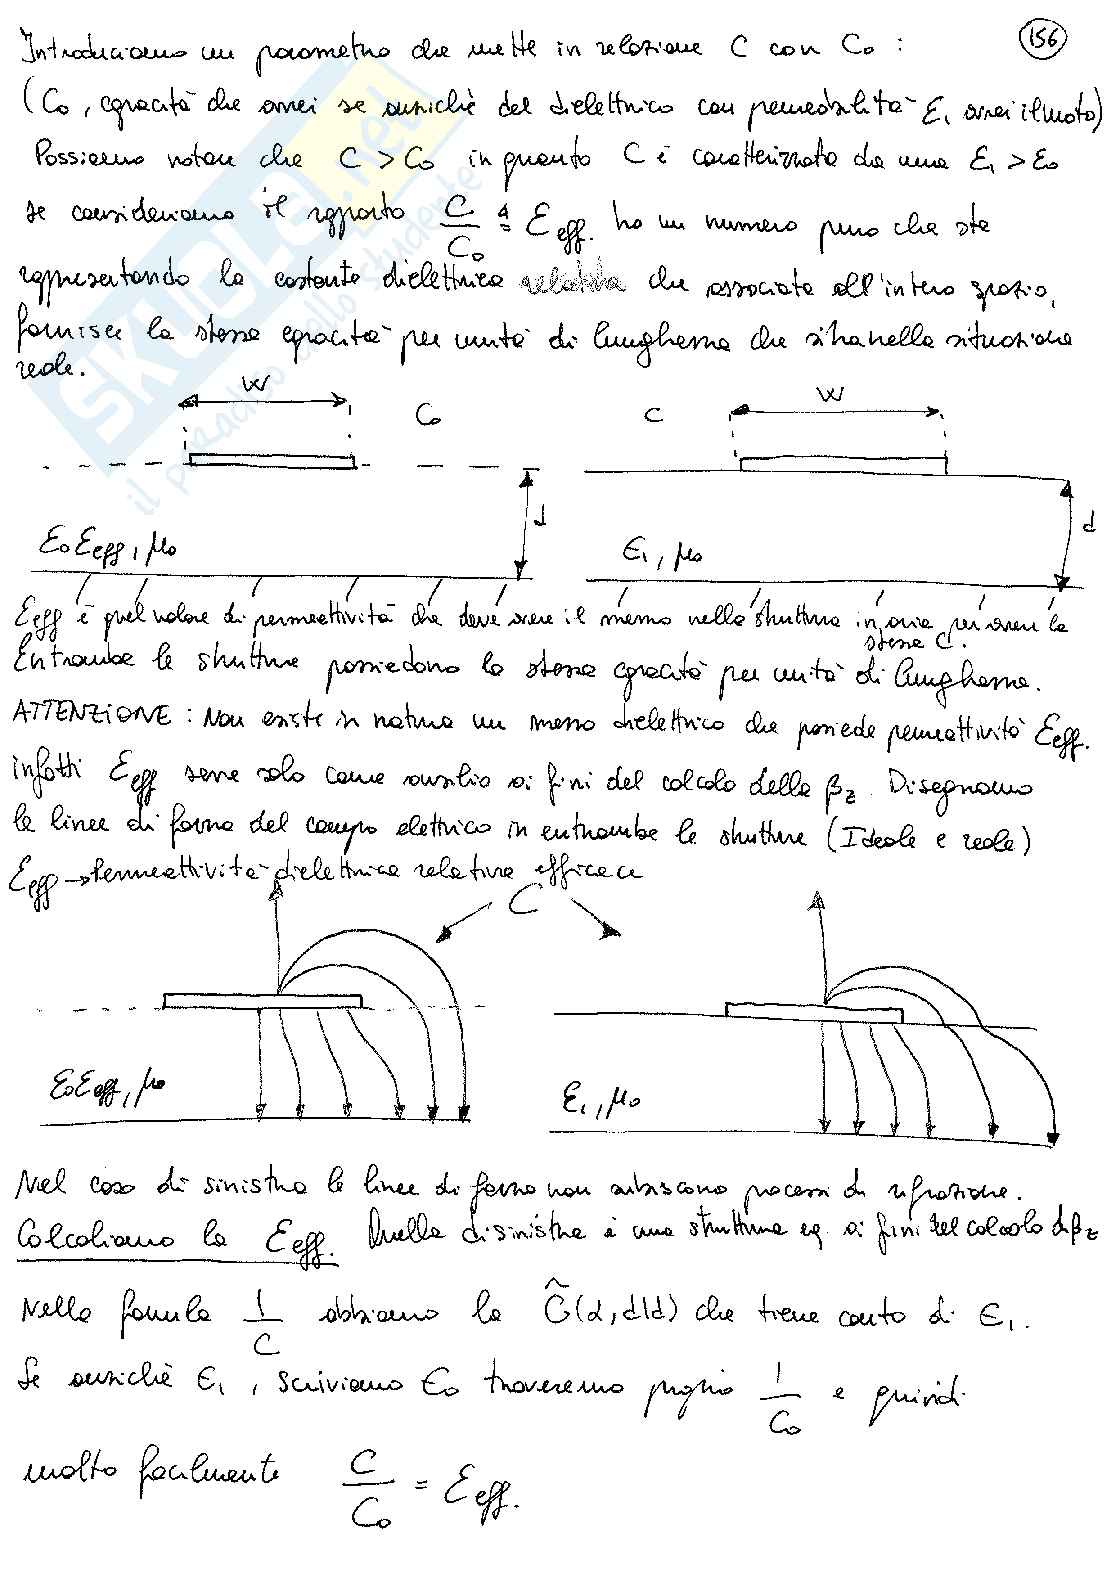 Introduciamo un parametro che mette in relazione C con C₀ :
156
(C₀, capacità che avrei se anziché del dielettrico con permeabilità ε₁ avrei il vuoto)
Possiamo notare che C > C₀ in quanto C è caratterizzata da una ε₁ > ε₀
se consideriamo il rapporto C/C₀ ≜ εeff. ho un numero puro che sta
rappresentando la costante dielettrica relativa che associata all'intero spazio,
fornisce la stessa capacità per unità di lunghezza che si ha nella situazione
reale.
W C₀ C W
d d
ε₀εeff, μ₀ ε₁, μ₀
εeff è quel valore di permeattività che deve avere il mezzo nella struttura in aria per avere la
stessa C.
Entrambe le strutture possiedono la stessa capacità per unità di lunghezza.
ATTENZIONE : Non esiste in natura un mezzo dielettrico che possiede permeattività εeff.
infatti εeff serve solo come ausilio ai fini del calcolo della βz. Disegnamo
le linee di forza del campo elettrico in entrambe le strutture (Ideale e reale)
εeff → Permeattività dielettrica relativa efficace
C
ε₀εeff, μ₀ ε₁, μ₀
Nel caso di sinistra le linee di forza non subiscono processi di rifrazione.
Calcoliamo la εeff. Quella di sinistra è una struttura eq. ai fini del calcolo di βz
Nella formula 1/C abbiamo la G̃(α, d/d) che tiene conto di ε₁.
Se anziché ε₁, scriviamo ε₀ troveremo proprio 1/C₀ e quindi
molto facilmente C/C₀ = εeff.
SKUOLA.net
il paradiso dello studente